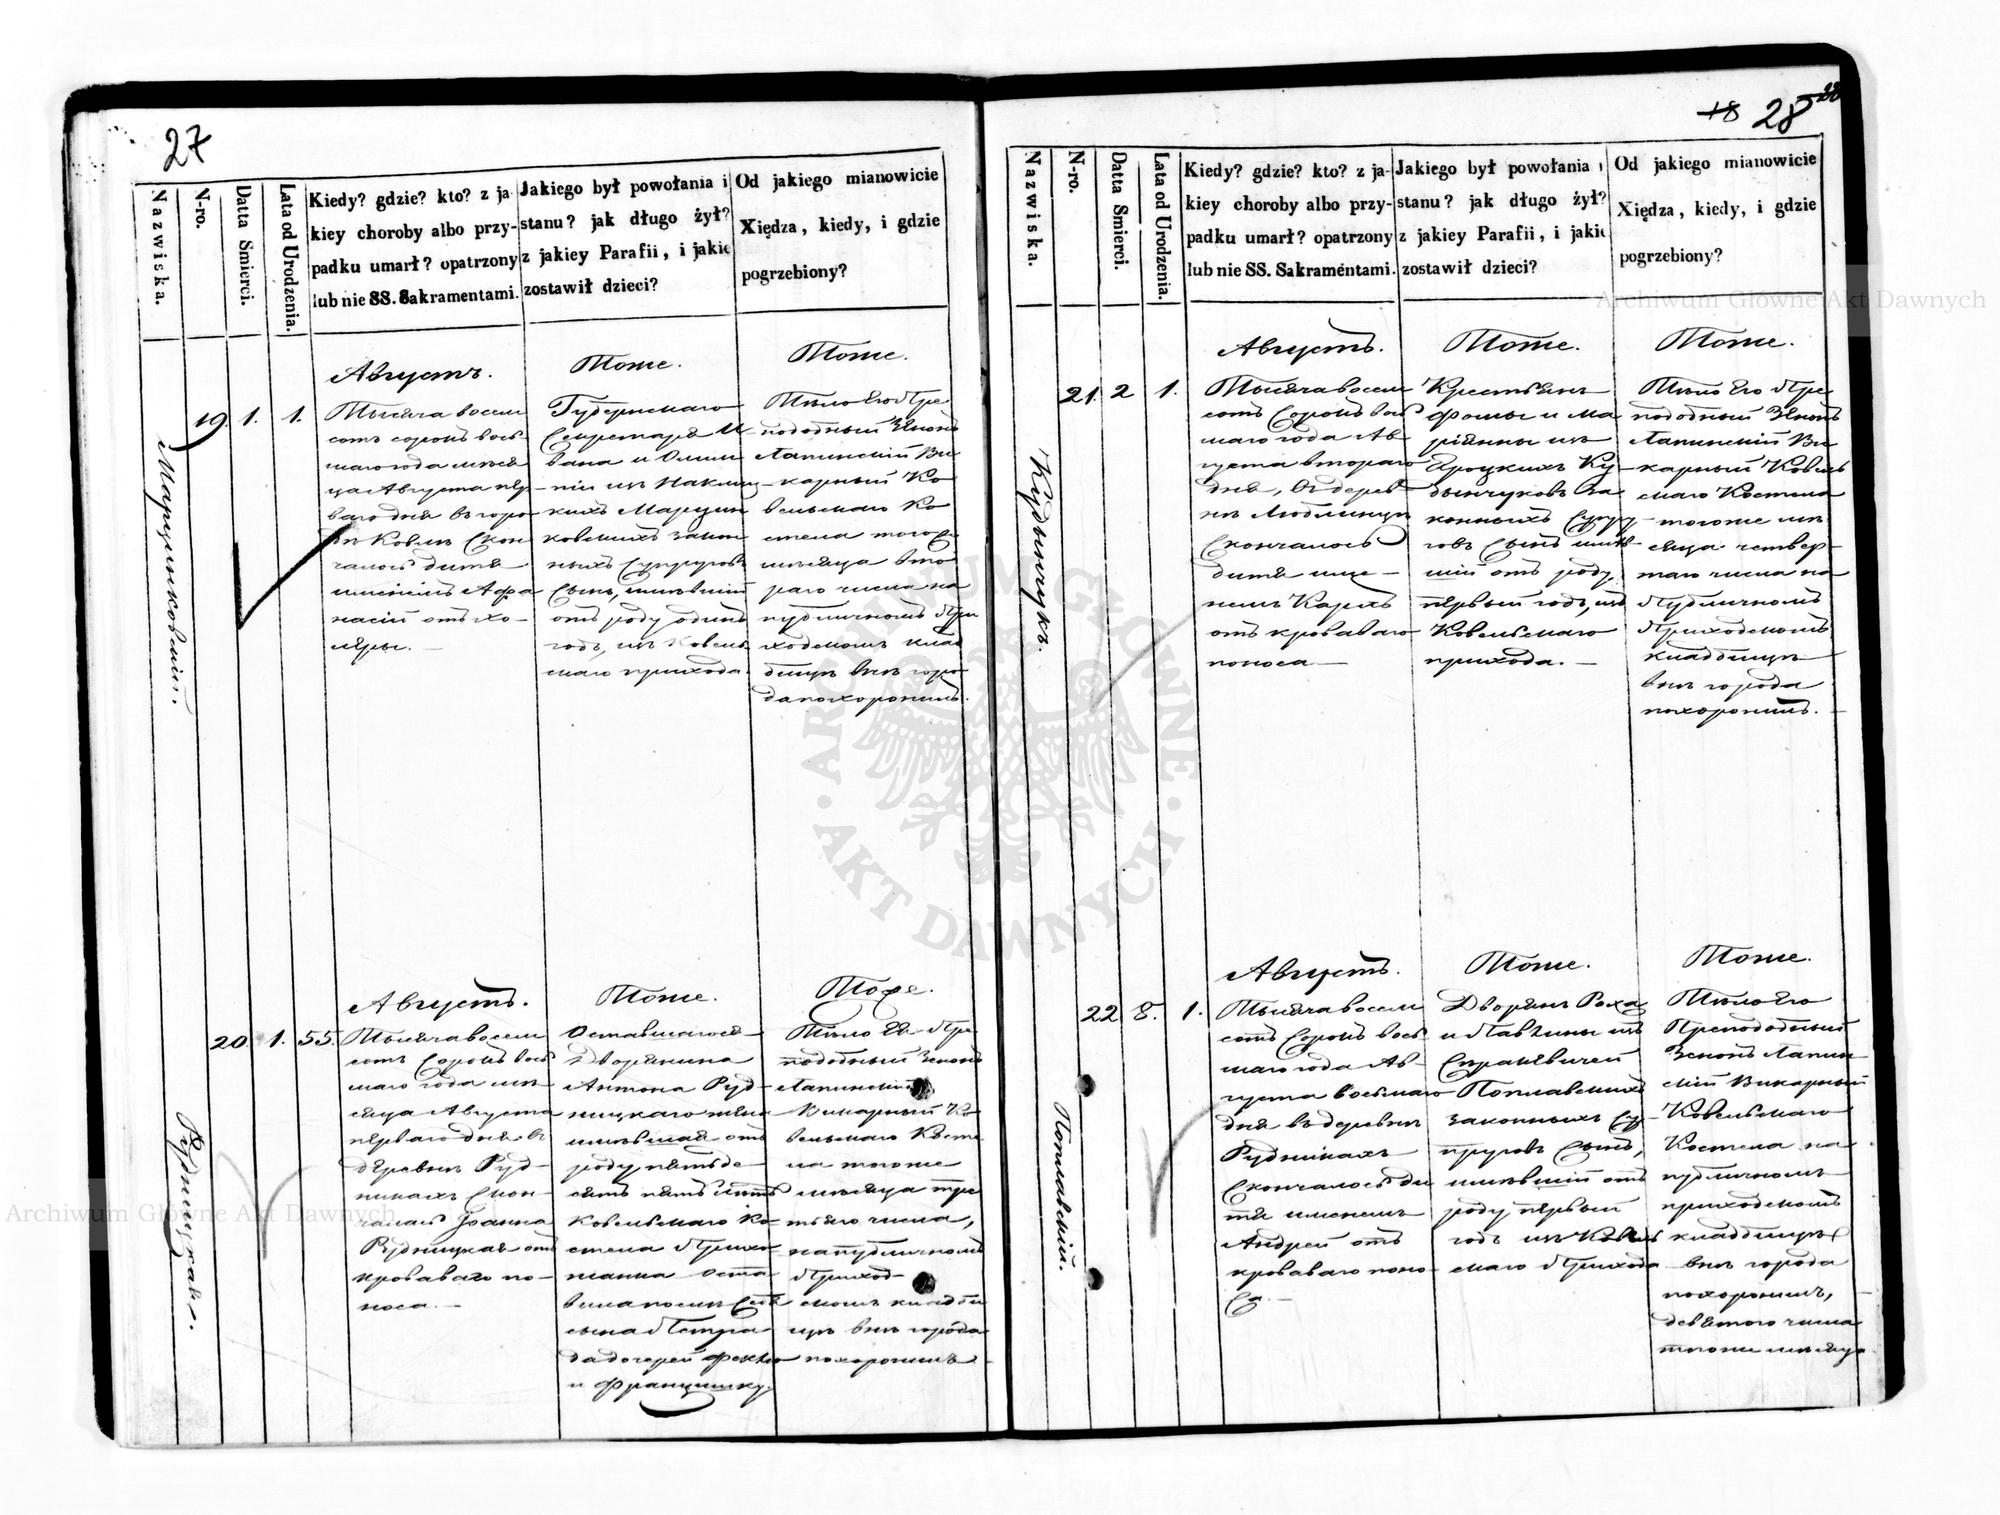 27
Nazwiska.
N-ro.
Datta Smierci.
Lata od Urodzenia.
Kiedy? gdzie? kto? z ja-
kiey choroby albo przy-
padku umarł? opatrzony
lub nie SS. Sakramentami.
Jakiego był powołania i
stanu? jak długo żył?
z jakiey Parafii, i jakie
zostawił dzieci?
Od jakiego mianowicie
Xiędza, kiedy, i gdzie
pogrzebiony?
Марцинковскій.
19. 1. 1.
Августъ.
Тысяча восем
сотъ сорокъ вось
маго года мѣся
ца Августа пер
ваго дня въ горо
дѣ Ковлѣ скон
чалось дитя
именемъ Афа
насій отъ хо-
леры. —
Тоже.
Губернскаго
Секретаря И
вана и Олим
піи изъ
Марцин
ковскихъ закон
ныхъ супруговъ
сынъ, имѣвшій
отъ роду одинъ
годъ, изъ Ковель
скаго прихода.
Тоже.
Тѣло его Пре
подобный Зенонъ
Лапинскій Ви
карный Ко
вельскаго Ко
стела тогоже
мѣсяца вто
раго числа на
публичномъ При
ходскомъ клад
бищѣ внѣ горо
да похоронилъ.
Рудницкая.
20. 1. 55.
Августъ.
Тысяча восем
сотъ сорокъ вось
маго года мѣ
сяца Августа
перваго дня въ
деревнѣ Руд
никахъ скон
чалась Іоанна
Рудницкая отъ
кроваваго по-
носа. —
Тоже.
Оставшагося
Дворянина
Антона Руд
ницкаго жена
имѣвшая отъ
роду пятьде
сятъ пять лѣтъ
Ковельскаго Ко
стела Прихо
жанка оста
вила после себя
сына Петра
да дочерей Феклю
и Францишку.
Тоже.
Тѣло Ея Пре
подобный Зенонъ
Лапинскій
Викарный Ко
вельскаго Косте
ла тогоже
мѣсяца тре
тьяго числа,
на публичномъ
Приход-
скомъ кладби
щѣ внѣ города
похоронилъ
+8 28
Nazwiska.
N-ro.
Datta Smierci.
Lata od Urodzenia.
Kiedy? gdzie? kto? z ja-
kiey choroby albo przy-
padku umarł? opatrzony
lub nie SS. Sakramentami.
Jakiego był powołania i
stanu? jak długo żył?
z jakiey Parafii, i jakie
zostawił dzieci?
Od jakiego mianowicie
Xiędza, kiedy, i gdzie
pogrzebiony?
Кудынчукъ.
21. 2 1.
Августъ.
Тысяча восем
сотъ сорокъ вось
маго года Ав
густа втораго
дня, въ дерев
нѣ Люблинцѣ
скончалось
дитя име-
немъ Карлъ
отъ кроваваго
поноса —
Тоже.
Крестьянъ
Фомы и Ма
ріянны изъ
Яроцкихъ Ку
дынчуковъ за
конныхъ супру
говъ сынъ имѣв
шій отъ роду
первый годъ, изъ
Ковельскаго
прихода. —
Тоже.
Тѣло Его Пре
подобный Зенонъ
Лапинскій Ви
карный Ковель
скаго Костела
тогоже мѣ
сяца четвер-
таго числа на
Публичномъ
Приходскомъ
кладбищѣ
внѣ города
похоронилъ. —
Поплавскій.
22 8. 1.
Августъ.
Тысяча восем
сотъ сорокъ вось
маго года Ав-
густа восьмаго
дня въ деревнѣ
Рудникахъ
скончалось ди
тя именемъ
Андрей отъ
кроваваго поно
са. —
Тоже.
Дворянъ Роха
и Павлины изъ
Поплавскихъ
законныхъ су
пруговъ сынъ,
имѣвшій отъ
роду первый
годъ изъ Ковель
скаго Прихода
Тоже.
Тѣло Его
Преподобный
Зенонъ Лапин
скій Викарный
Ковельскаго
Костела на
публичномъ
приходскомъ
кладбищѣ
внѣ города
похоронилъ,
девятого числа
тогоже мѣсяца
Archiwum Główne Akt Dawnych
Archiwum Główne Akt Dawnych
ARCHIWUM GŁÓWNE · AKT DAWNYCH ·